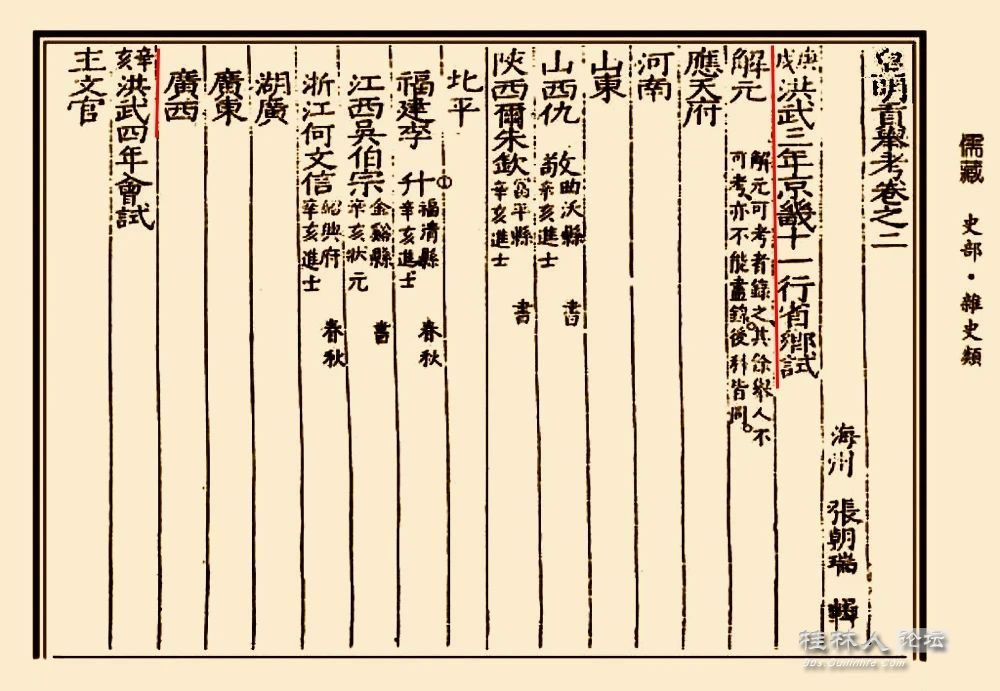 皇明貢舉考卷之二
海州 張朝瑞 輯
庚戌洪武三年京畿十一行省鄉試
解元 解元可考者錄之其餘舉人不
可考亦不能盡錄後科皆同。
應天府
河南
山東
山西仇 敬 曲沃縣 書
辛亥進士
陝西爾朱欽 富平縣 書
辛亥進士
北平
福建李 什 福清縣 春秋
辛亥進士
江西吳伯宗 金谿縣 書
辛亥狀元
浙江何文信 紹興府 春秋
辛亥進士
湖廣
廣東
廣西
辛亥洪武四年會試
主文官
儒藏 史部·雜史類
桂林人 论坛
bbs.Guilinlife.Com